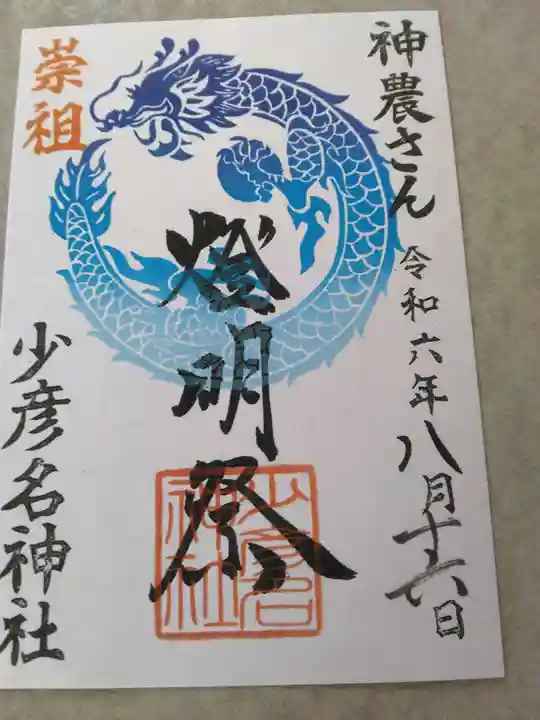 神農さん 令和六年八月十六日
燈明祭
少彦名神社
崇祖
少彦名神社